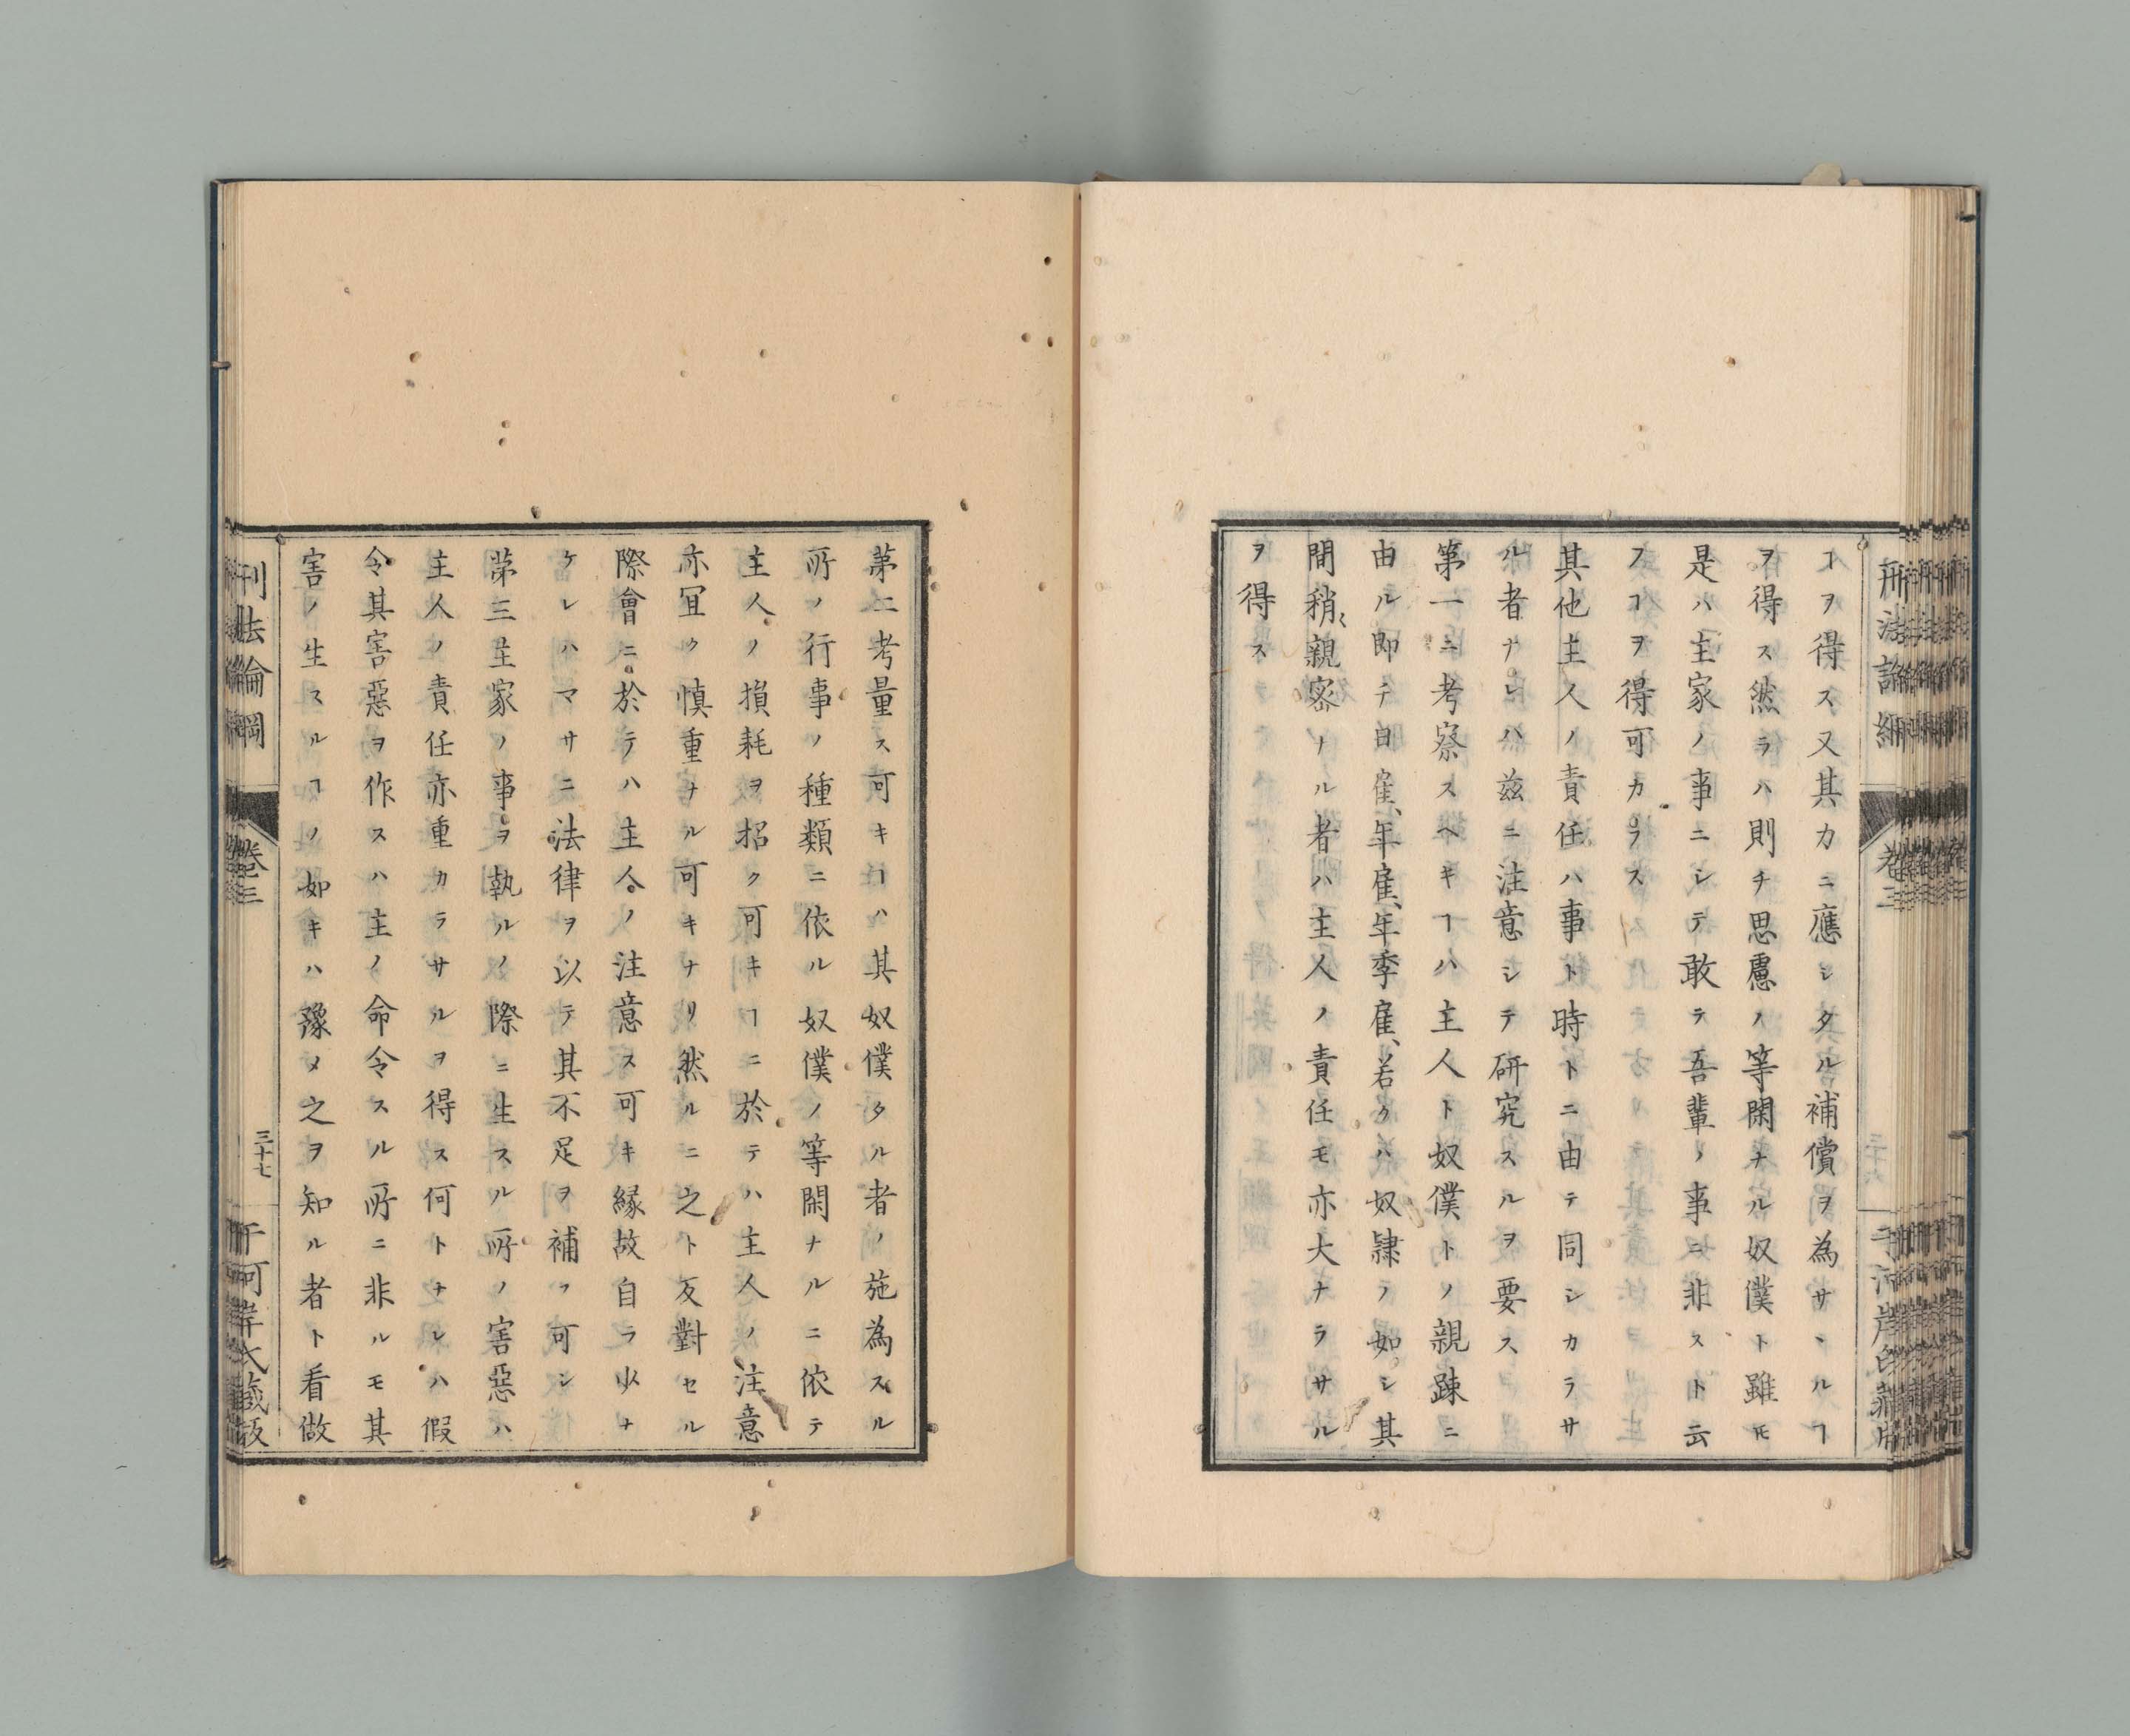 ヿヲ得ス又其力ニ應シタル補償ヲ為サヽルヿ
ヲ得ス然ラハ則チ思慮ノ等閑ナル奴僕ト雖モ
是ハ主家ノ事ニシテ敢テ吾輩ノ事ニ非スト云
フヿヲ得可カラス
其他主人ノ責任ハ事ト時トニ由テ同シカラサ
ル者ナレハ茲ニ注意シテ研究スルヲ要ス
第一ニ考察スヘキヿハ主人ト奴僕トノ親疎ニ
由ル即チ日雇、年雇、年季雇、若クハ奴隷ノ如シ其
間稍〻親密ナル者ハ主人ノ責任モ亦大ナラサル
ヲ得ス
第二考量ス可キヿハ其奴僕タル者ノ施為スル
所ノ行事ノ種類ニ依ル奴僕ノ等閑ナルニ依テ
主人ノ損耗ヲ招ク可キヿニ於テハ主人ノ注意
亦冝ク慎重ナル可キナリ然ルニ之ト反對セル
際會ニ於テハ主人ノ注意ス可キ縁故自ラ少ナ
ケレハマサニ法律ヲ以テ其不足ヲ補フ可シ
第三主家ノ事ヲ執ルノ際ニ生スル所ノ害惡ハ
主人ノ責任亦重カラサルヲ得ス何トナレハ假
令其害惡ヲ作スハ主ノ命令スル所ニ非ルモ其
害ノ生スルヿノ如キハ豫メ之ヲ知ル者ト看做
刑法論綱
卷三
三十七